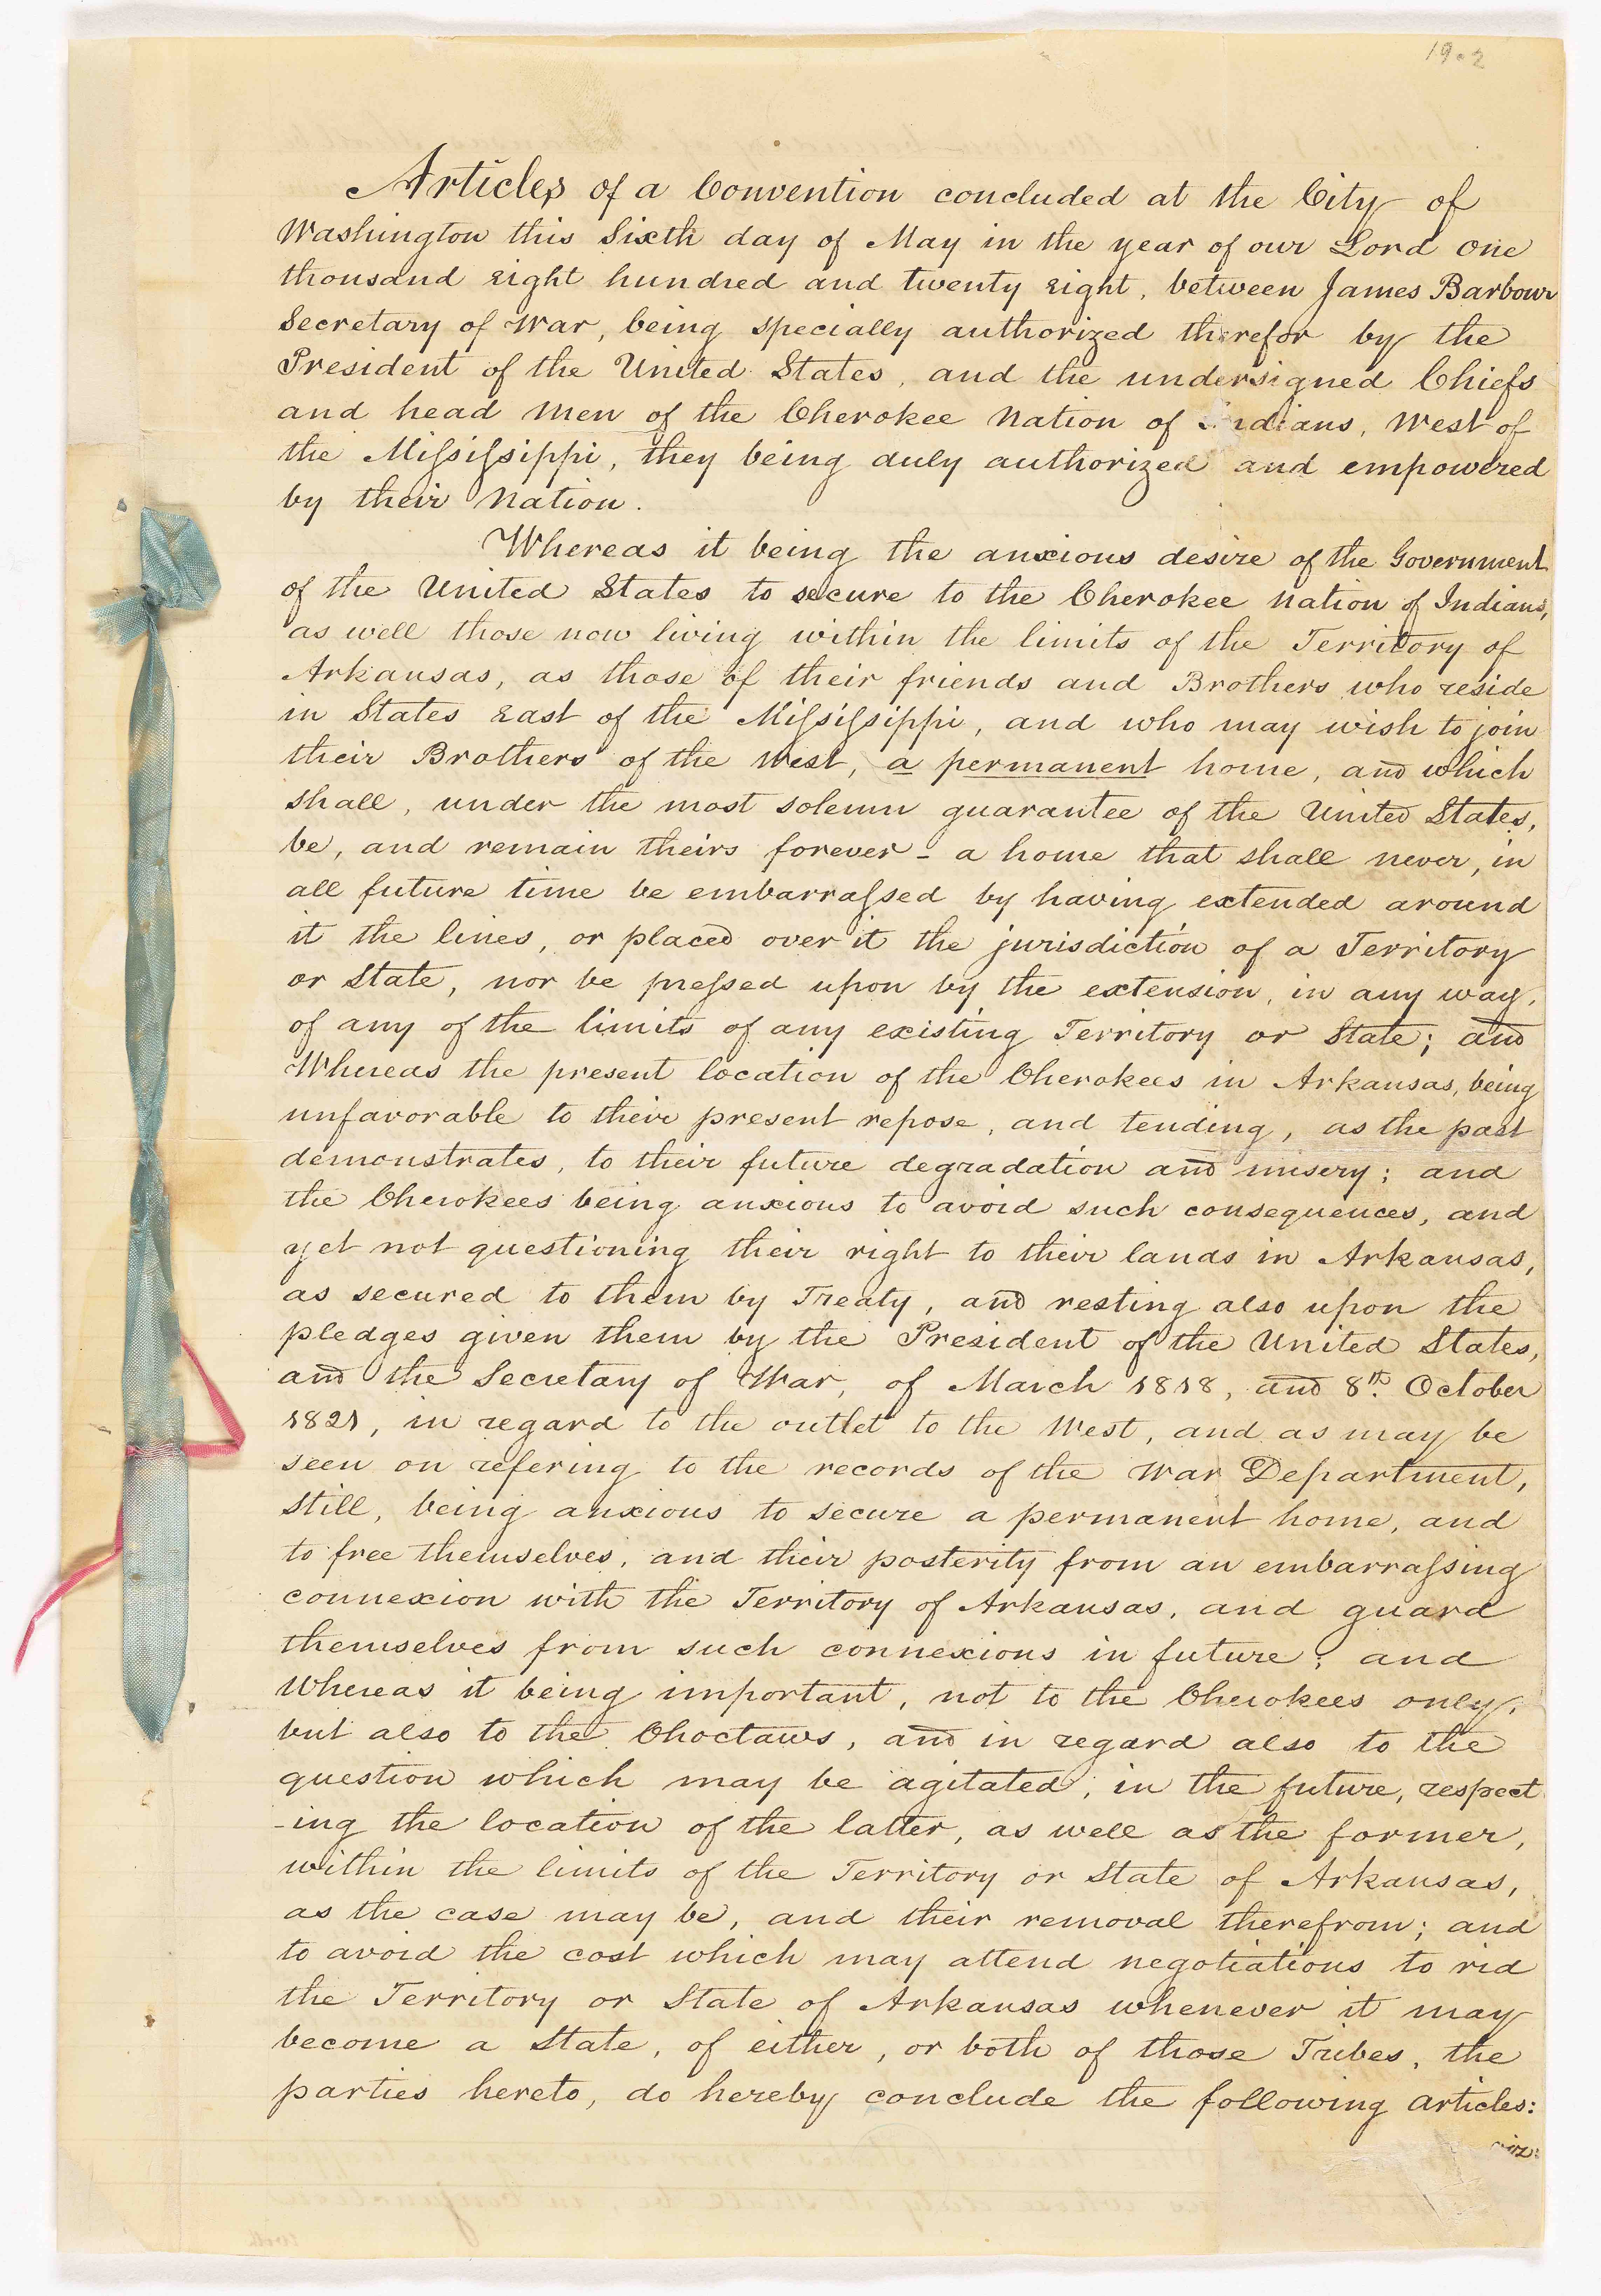 19.2
Articles of a Convention concluded at the City of
Washington this Sixth day of May in the year of our Lord one
thousand eight hundred and twenty eight, between James Barbour
Secretary of War, being specially authorized therefor by the
President of the United States, and the undersigned Chiefs
and head men of the Cherokee Nation of Indians, West of
the Mississippi, they being duly authorized and empowered
by their Nation.
Whereas it being the anxious desire of the Government
of the United States to secure to the Cherokee nation of Indians,
as well those now living within the limits of the Territory of
Arkansas, as those of their friends and Brothers who reside
in States East of the Mississippi, and who may wish to join
their Brothers of the West, a permanent home, and which
shall, under the most solemn guarantee of the United States,
be, and remain theirs forever - a home that shall never, in
all future time be embarrassed by having extended around
it the lines, or placed over it the jurisdiction of a Territory
or State, nor be pressed upon by the extension, in any way,
of any of the limits of any existing Territory or State; and
Whereas the present location of the Cherokees in Arkansas, being
unfavorable to their present repose, and tending, as the past
demonstrates, to their future degradation and misery; and
the Cherokees being anxious to avoid such consequences, and
yet not questioning their right to their lands in Arkansas,
as secured to them by Treaty, and resting also upon the
pledges given them by the President of the United States,
and the Secretary of War, of March 1818, and 8th. October
1821, in regard to the outlet to the West, and as may be
seen on refering to the records of the War Department,
still, being anxious to secure a permanent home, and
to free themselves, and their posterity from an embarrassing
connexion with the Territory of Arkansas, and guard
themselves from such connexions in future; and
Whereas it being important, not to the Cherokees only,
but also to the Choctaws, and in regard also to the
question which may be agitated, in the future, respect
-ing the location of the latter, as well as the former,
within the limits of the Territory or State of Arkansas,
as the case may be, and their removal therefrom; and
to avoid the cost which may attend negotiations to rid
the Territory or State of Arkansas whenever it may
become a State, of either, or both of those Tribes, the
parties hereto, do hereby conclude the following articles:
viz: